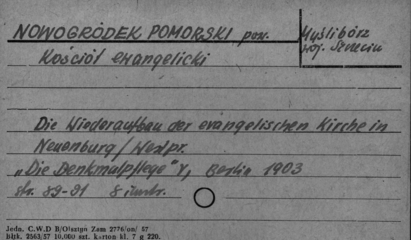 NOWOGRÓDEK POMORSKI pow. Myślibórz
woj. Szczecin
Kościół ewangelicki
Die Wiederaufbau der evangelischen Kirche in
Neuenburg / Westpr.
„Die Denkmalpflege" V, Berlin 1903
str. 89-91 8 ilustr.
Jedn. C.W.D B/Olsztyn Zam 2776/on/ 57
bibk. 2563/57 10.000 szt. karton kl. 7 g 220.